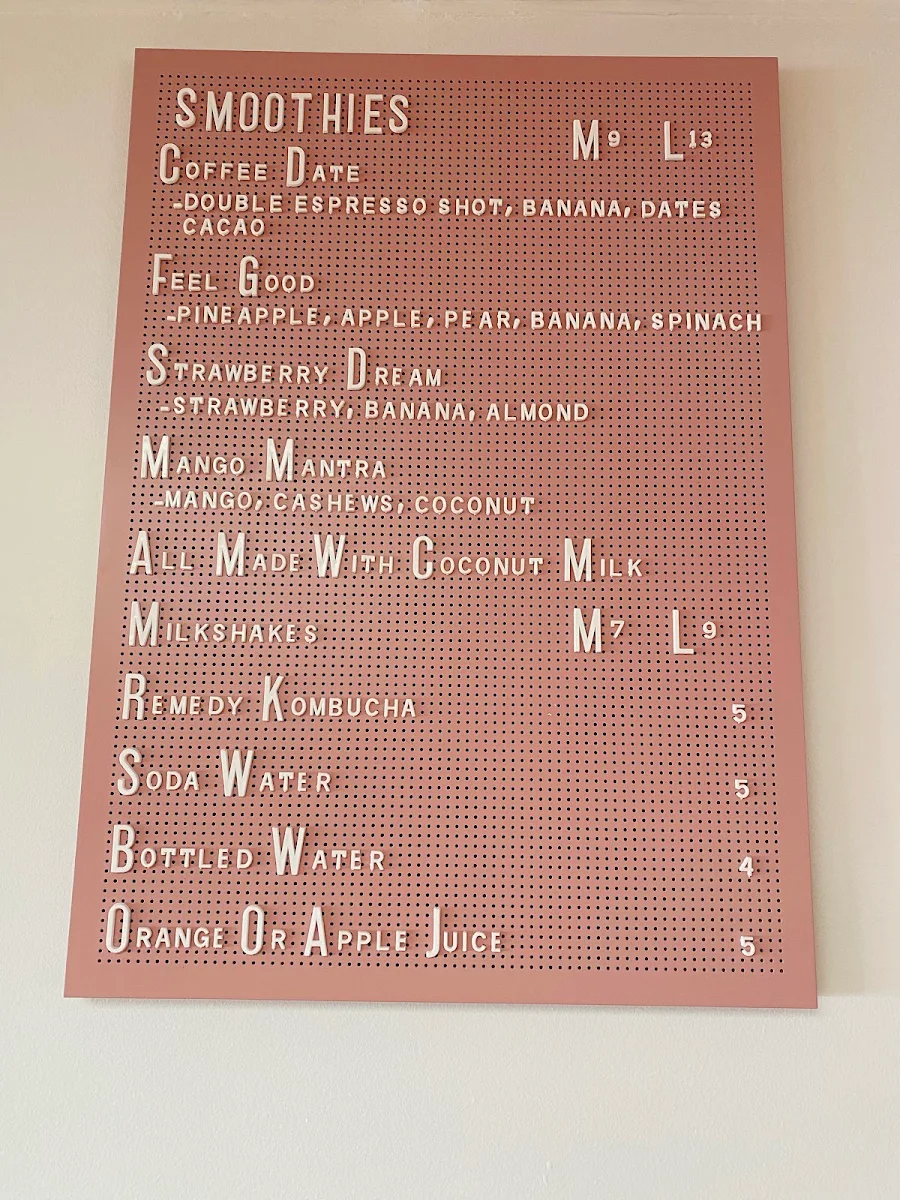 SMOOTHIES M9 L13
COFFEE DATE
-DOUBLE ESPRESSO SHOT, BANANA, DATES
CACAO
FEEL GOOD
-PINEAPPLE, APPLE, PEAR, BANANA, SPINACH
STRAWBERRY DREAM
-STRAWBERRY, BANANA, ALMOND
MANGO MANTRA
-MANGO, CASHEWS, COCONUT
ALL MADE WITH COCONUT MILK
MILKSHAKES M7 L9
REMEDY KOMBUCHA 5
SODA WATER 5
BOTTLED WATER 4
ORANGE OR APPLE JUICE 5